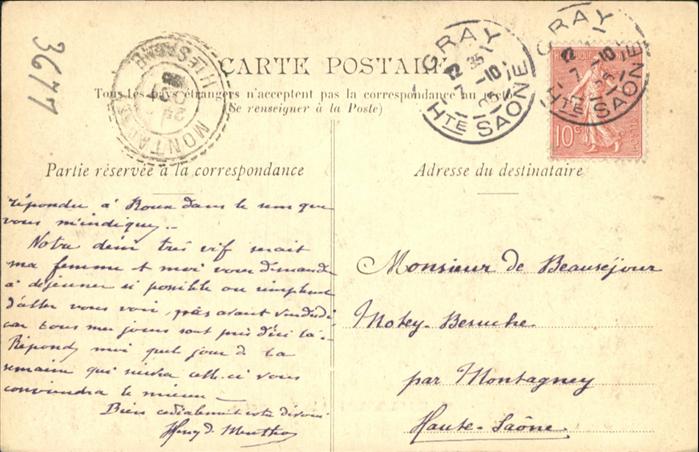 3677
CARTE POSTALE
Tous les pays étrangers n'acceptent pas la correspondance au recto
(Se renseigner à la Poste)
GRAY
7 -10
HTE SAONE
GRAY
7 -10
HTE SAONE
10c
Partie réservée à la correspondance
Adresse du destinataire
répondu à Roux dans le sens que
vous m'indiquez..
Notre désir très vif serait
ma femme et moi vous demander
à déjeuner si possible ou simplement
d'aller vous voir, mais avant vendredi
car tous mes jours sont pris d'ici là.-
Répondez moi quel jour de la
semaine qui suivra celle-ci vous
conviendra le mieux —
Bien cordialement votre dévoué
Henry de
Monsieur de Beauséjour
Motey-Besuche
par Montagney
Haute-Saône.